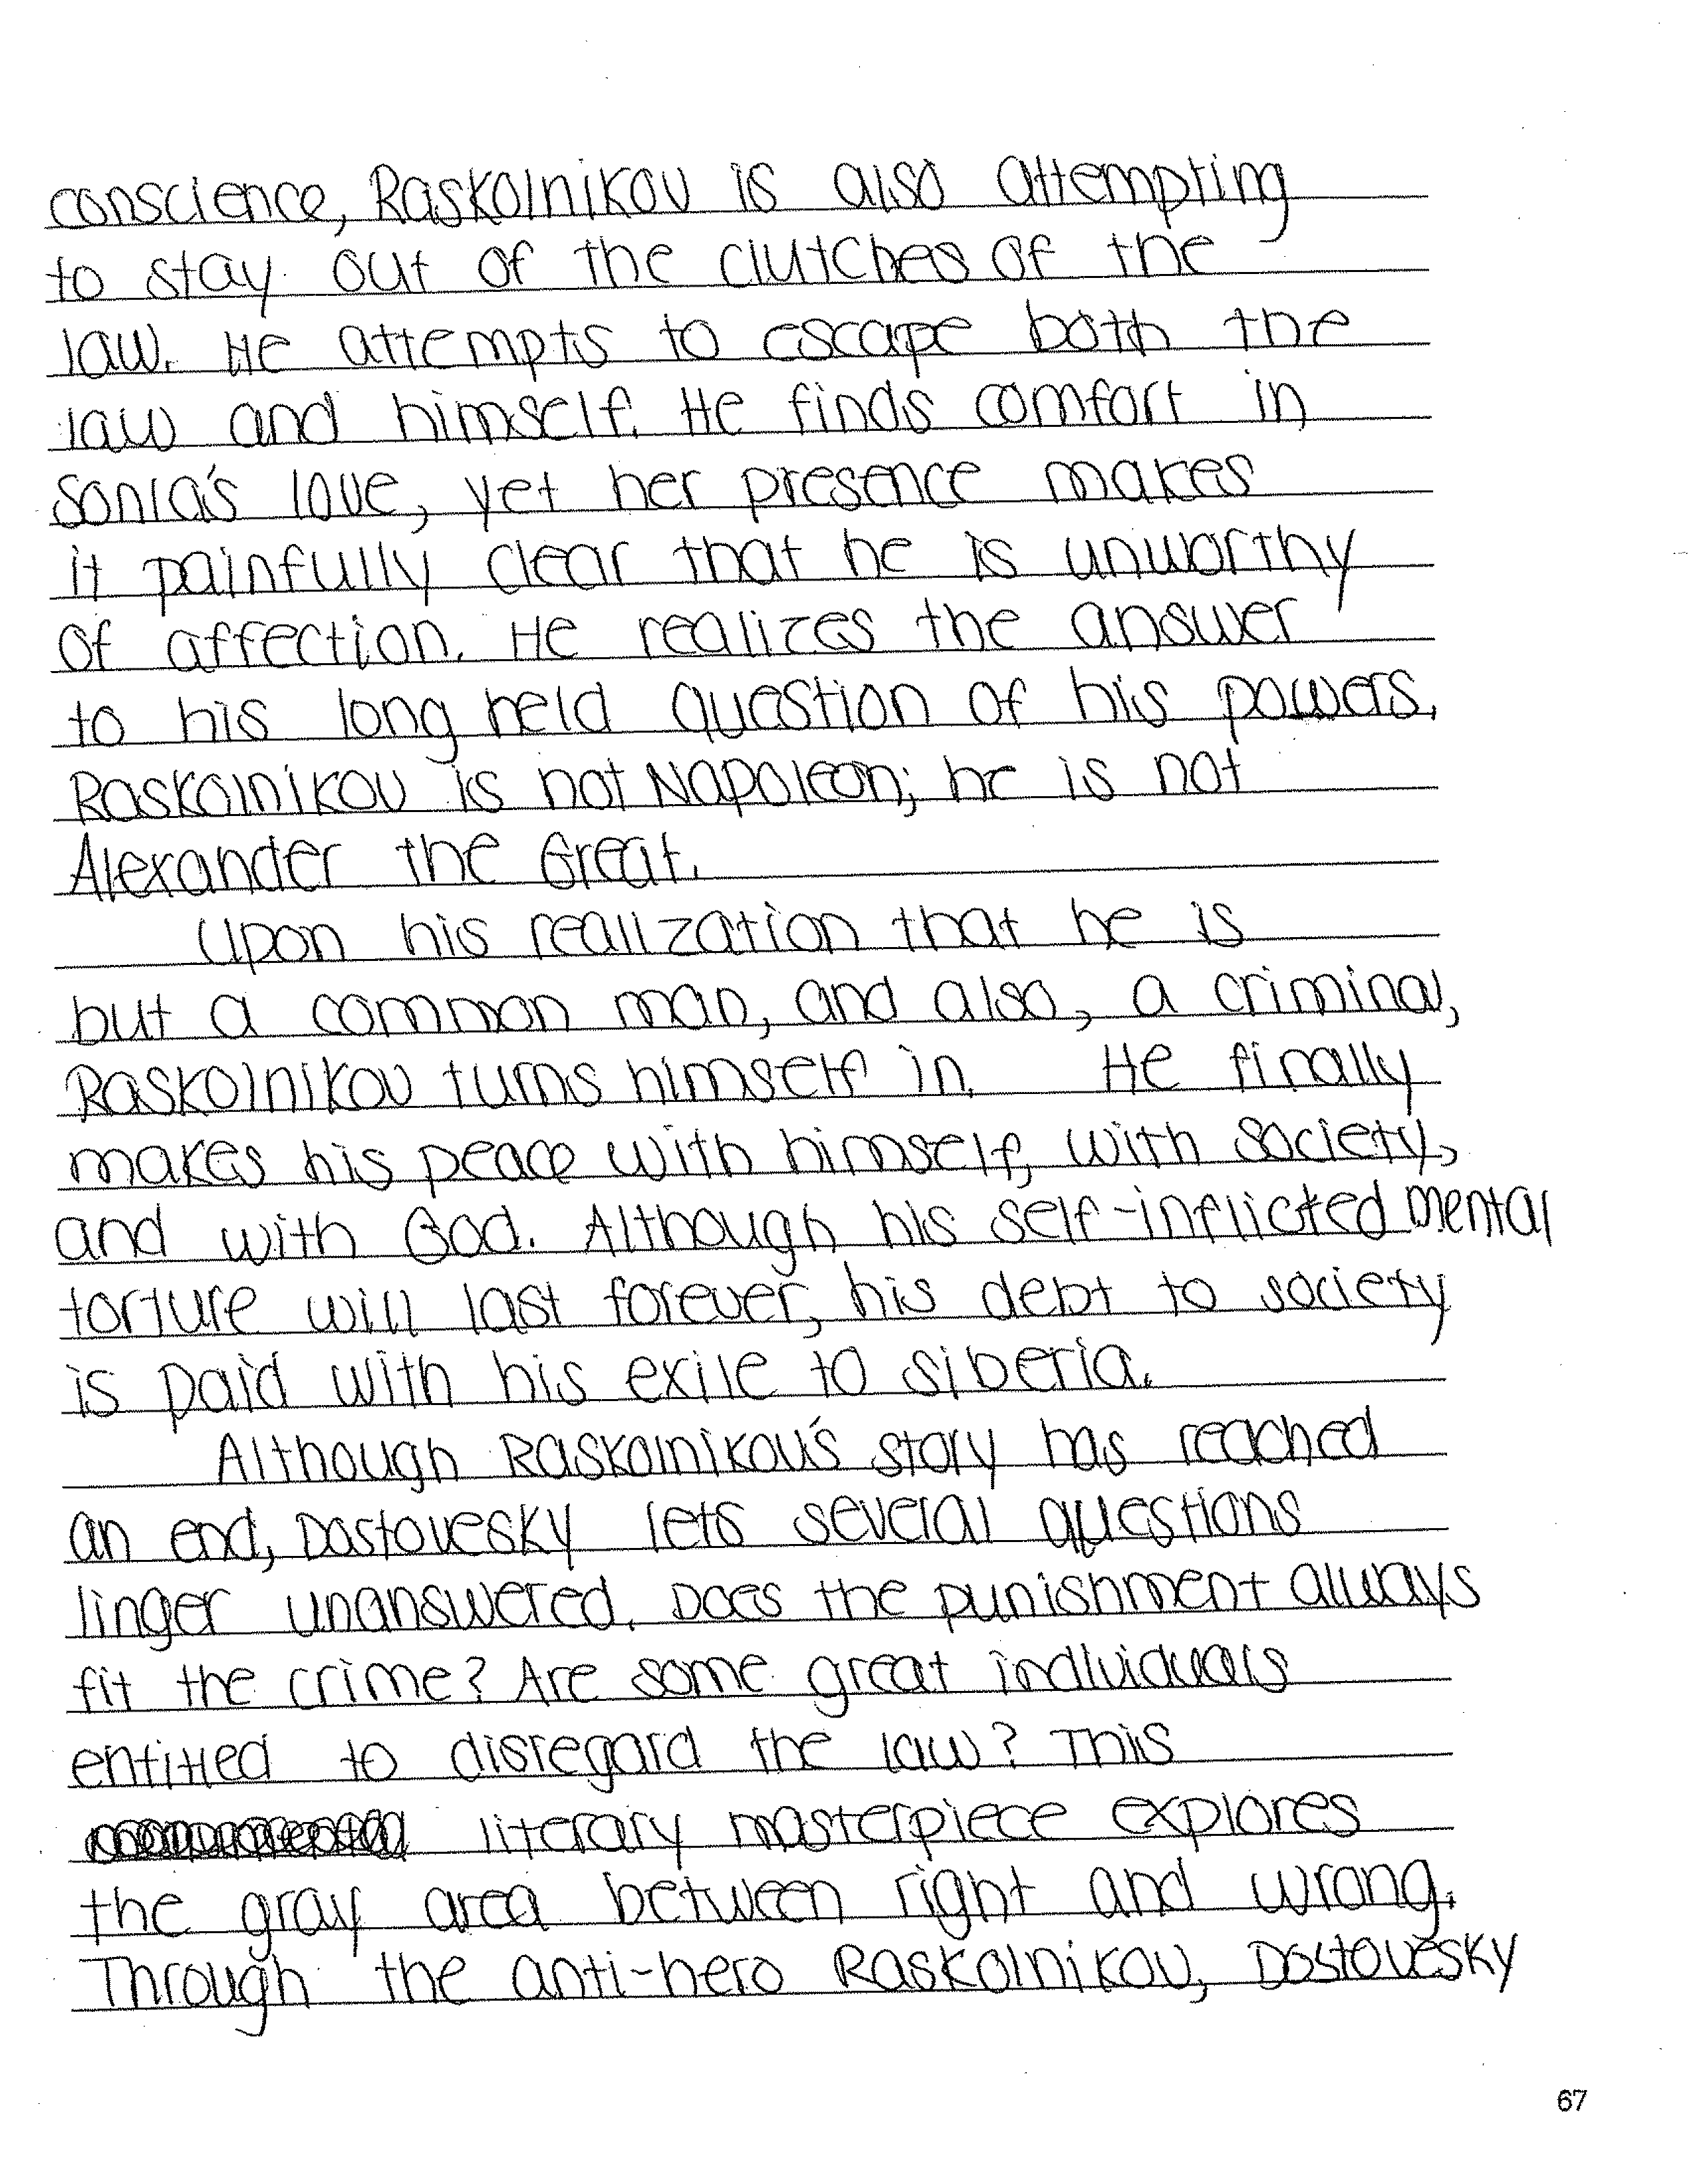 conscience, Raskolnikov is also attempting
to stay out of the clutches of the
law. He attempts to escape both the
law and himself. He finds comfort in
Sonia's love, yet her presence makes
it painfully clear that he is unworthy
of affection. He realizes the answer
to his long held question of his powers.
Raskolnikov is not Napoleon; he is not
Alexander the Great.
Upon his realization that he is
but a common man, and also, a criminal,
Raskolnikov turns himself in. He finally
makes his peace with himself, with society,
and with God. Although his self-inflicted mental
torture will last forever, his debt to society
is paid with his exile to Siberia.
Although Raskolnikov's story has reached
an end, Dostovesky lets several questions
linger unanswered. Does the punishment always
fit the crime? Are some great individuals
entitled to disregard the law? This
literary masterpiece explores
the gray area between right and wrong.
Through the anti-hero Raskolnikov, Dostovesky
67